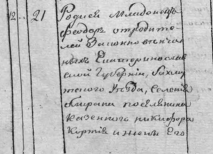 12 21 Родися Младенецъ
Феодоръ от родите
лей Законно венчан
ныхъ Екатеринослав
ской Губернии, Бахму
тского Уезда, Селения
поселянина
Казенного Никифора
и жены Его